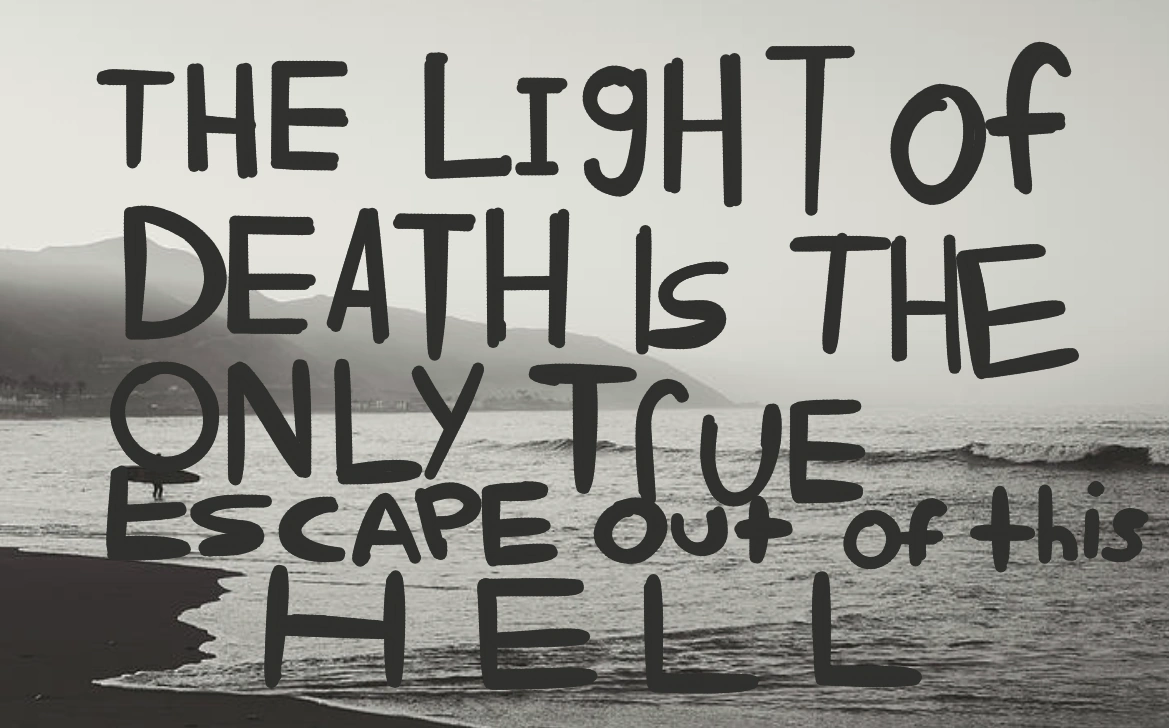 THE LIgHT Of
DEATH Is THE
ONLY TrUE
ESCAPE out of this
HELL